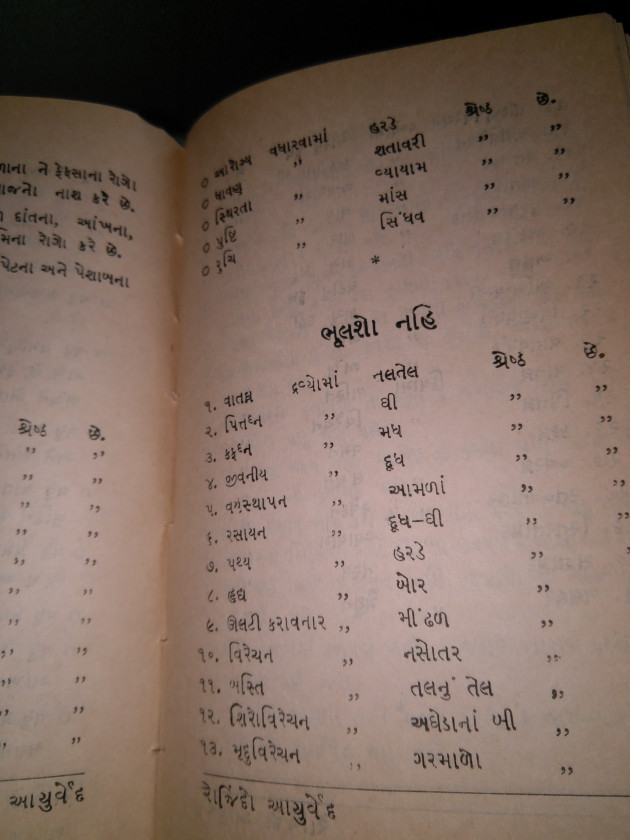 ને ફેફસાના રોગો
નાશ કરે છે.
દાંતના, આંખના,
રોગો કરે છે.
પેટના અને પેશાબના
શ્રેષ્ઠ છે.
,, ,,
,, ,,
,, ,,
,, ,,
,, ,,
,, ,,
,, ,,
,, ,,
,, ,,
,, ,,
,, ,,
આયુર્વેદ
૦ આરોગ્ય વધારવામાં હરડે શ્રેષ્ઠ છે.
૦ ધાવણ ,, શતાવરી ,, ,,
૦ સ્થિરતા ,, વ્યાયામ ,, ,,
૦ પુષ્ટિ ,, માંસ ,, ,,
૦ રુચિ ,, સિંધવ ,, ,,
*
ભૂલશો નહિ
૧. વાતઘ્ન દ્રવ્યોમાં તલતેલ શ્રેષ્ઠ છે.
૨. પિત્તઘ્ન ,, ઘી ,, ,,
૩. કફઘ્ન ,, મધ ,, ,,
૪. જીવનીય ,, દૂધ ,, ,,
૫. વયઃસ્થાપન ,, આમળાં ,, ,,
૬. રસાયન ,, દૂધ-ઘી ,, ,,
૭. પથ્ય ,, હરડે ,, ,,
૮. હૃદ્ય ,, બોર ,,
૯. ઊલટી કરાવનાર ,, મીંઢળ ,,
૧૦. વિરેચન ,, નસોતર ,,
૧૧. બસ્તિ ,, તલનું તેલ ,,
૧૨. શિરોવિરેચન ,, અઘેડાનાં બી ,,
૧૩. મૃદુવિરેચન ,, ગરમાળો ,,
રોજિંદો આયુર્વેદ